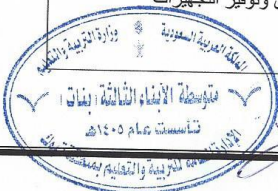 وتوفير التجهيزات
المملكة العربية السعودية
وزارة التربية والتعليم
متوسطة الأبناء الثالثة (بنات)
تأسست عام ١٤٠٥هـ
للتربية والتعليم